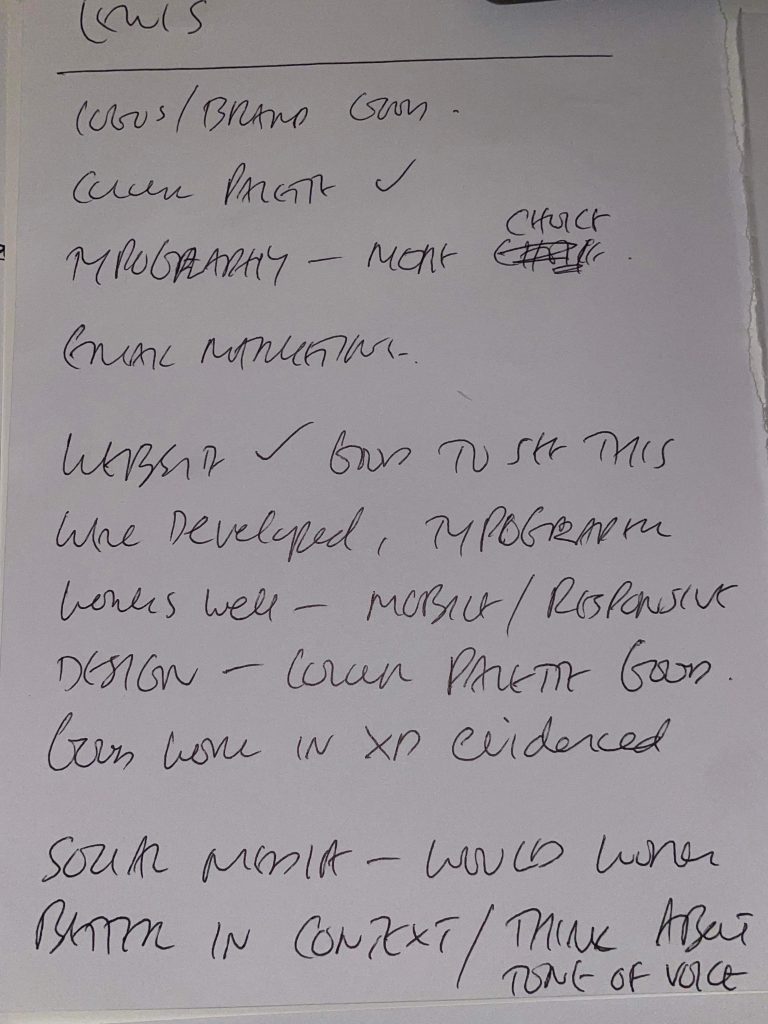 LEWIS
LOGOS/BRAND GOOD.
COLOUR PALETTE ✓
TYPOGRAPHY – MORE CHOICE.
EMAIL MARKETING.
WEBSITE ✓ GOOD TO SEE THIS
WERE DEVELOPED, TYPOGRAPHY
WORKS WELL – MOBILE/RESPONSIVE
DESIGN – COLOUR PALETTE GOOD.
GOOD WORK IN XD EVIDENCED
SOCIAL MEDIA – WOULD WORK
BETTER IN CONTEXT/THINK ABOUT
TONE OF VOICE